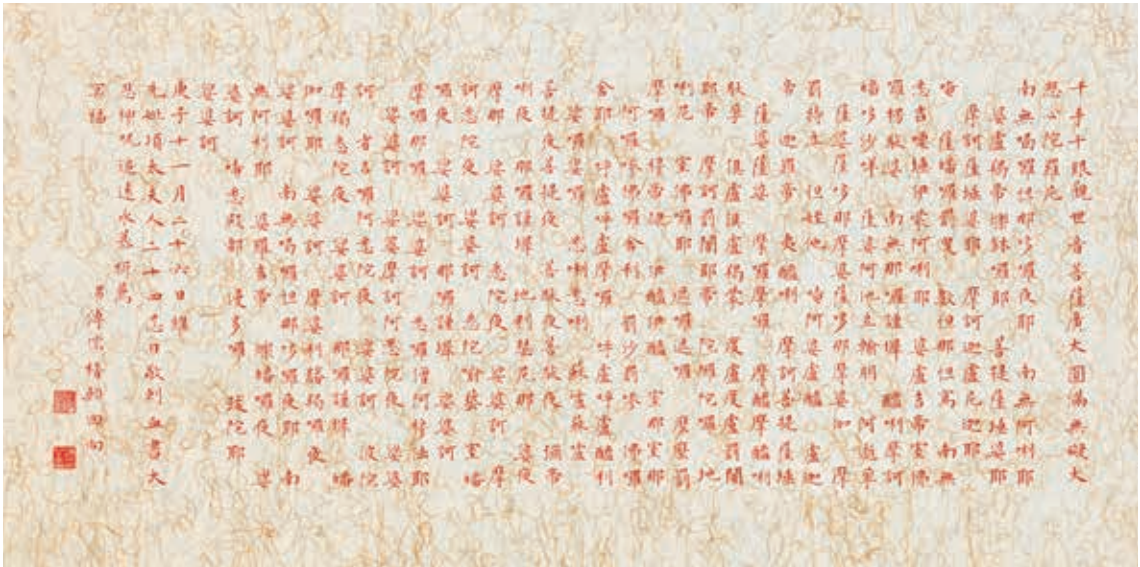 千手千眼觀世音菩薩廣大圓滿無礙大
悲心陀羅尼
南無喝囉怛那哆囉夜耶　南無阿唎耶
婆盧羯帝爍缽囉耶　菩提薩埵婆耶
摩訶薩埵婆耶　摩訶迦盧尼迦耶
唵　薩皤囉罰曳　數怛那怛寫　南無
悉吉嘌埵伊蒙阿唎耶　婆盧吉帝室佛
囉楞馱婆　南無那囉謹墀　醯唎摩訶
皤哆沙咩　薩婆阿他豆輸朋　阿逝孕
薩婆薩哆那摩婆薩哆那摩婆伽　摩
罰特豆　怛姪他　唵阿婆盧醯　盧迦
帝　迦羅帝　夷醯唎　摩訶菩提薩埵
薩婆薩婆　摩囉摩囉　摩醯摩醯唎
馱孕　俱盧俱盧羯蒙　度盧度盧罰闍
耶帝　摩訶罰闍耶帝　陀囉陀囉　地
唎尼　室佛囉耶　遮囉遮囉　摩麼罰
摩囉　穆帝隸　伊醯伊醯　室那室那
阿囉嘇佛囉舍利　罰沙罰嘇　佛囉
舍耶　呼盧呼盧摩囉　呼盧呼盧醯利
娑囉娑囉　悉唎悉唎　蘇嚧蘇嚧
菩提夜菩提夜　菩馱夜菩馱夜　彌帝
唎夜　那囉謹墀　地利瑟尼那　婆夜
摩那　娑婆訶　悉陀夜　娑婆訶　摩
訶悉陀夜　娑婆訶　悉陀喻藝　室皤
囉夜　娑婆訶　那囉謹墀　娑婆訶
摩囉那囉　娑婆訶　悉囉僧阿穆佉耶
娑婆訶　娑婆摩訶阿悉陀夜　娑婆
訶　者吉囉阿悉陀夜　娑婆訶　波陀
摩羯悉陀夜　娑婆訶　那囉謹墀　皤
伽囉耶　娑婆訶　摩婆利勝羯囉夜
娑婆訶　南無喝囉怛那哆囉夜耶　南
無阿利耶　婆羅吉帝　爍皤囉夜　娑
婆訶　唵悉殿都　漫多囉　跋陀耶
娑婆訶
庚子十一月二十六日
先妣項太夫人二十四忌日敬刺血書大
悲神呪追遠永慕祈薦
冥福　男傳宗稽顙回向